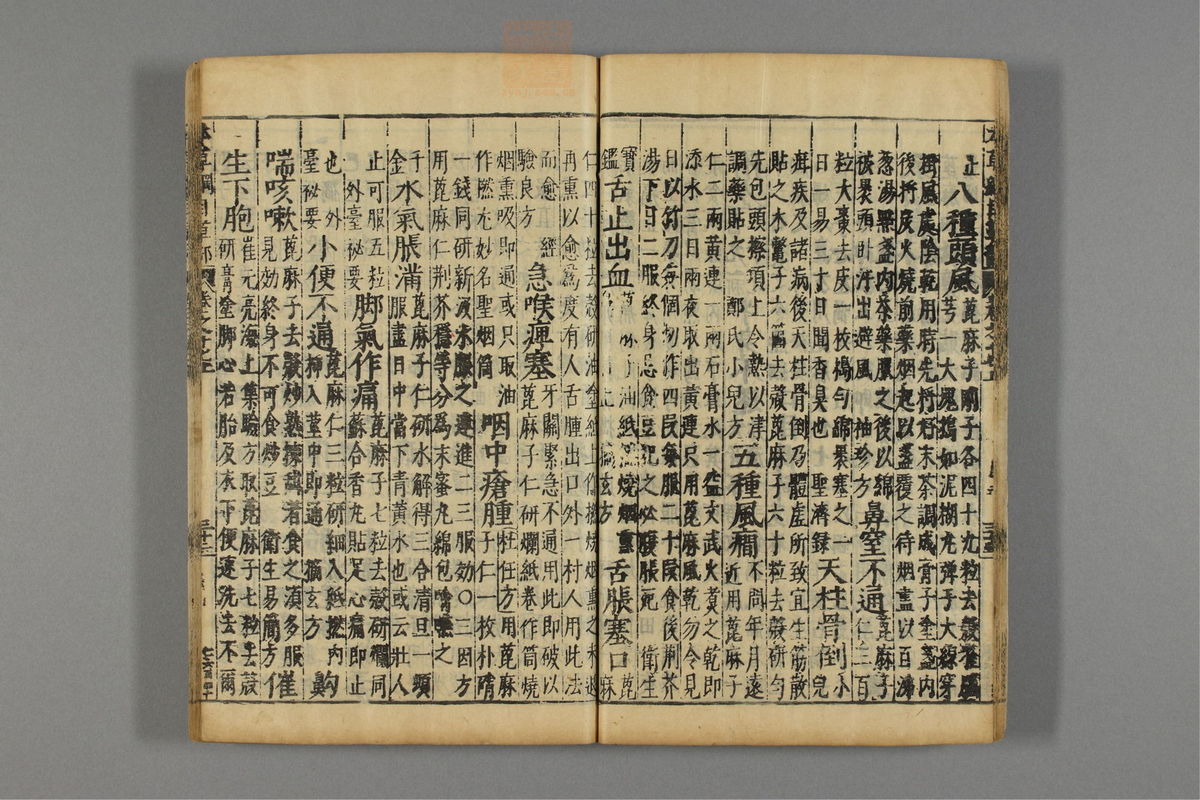 止八種頭風蓖麻子剛子各四十九粒去殼雀腦
芎一大塊搗如泥糊丸彈子大線穿
掛風處陰乾用時先將好末茶調成膏子塗盞內
後將炭火燒前藥烟起以盞覆之待烟盡以百沸
葱湯點盞內茶藥服之後以綿
被裹頭卧汗出避風 袖珍方鼻窒不通蓖麻子
仁三百
粒大棗去皮一枚搗勻綿裹塞之一
日一易三十日聞香臭也 聖濟錄天柱骨倒小兒
疳疾及諸病後天柱骨倒乃體虛所致宜生筋散
貼之木鱉子六箇去殼蓖麻子六十粒去殼研勻
先包頭擦項上令熱以津
調藥貼之 鄭氏小兒方五種風癇不問年月遠
近用蓖麻子
仁二兩黃連一兩石膏水一盌文武火煮之乾即
添水三日兩夜取出黃連只用蓖麻風乾勿令見
日以竹刀每個切作四段每服二十段食後荆芥
湯下日二服終身忌食豆犯之必腹脹死 衛生
寶鑑舌止出血蓖麻子油紙燃燒烟熏
摘玄方舌脹塞口蓖麻
仁四十粒去殼研油塗紙上作撚燒烟熏之未退
再熏以愈為度有人舌腫出口外一村人用此法
而愈 經
驗良方急喉痺塞牙關緊急不通用此即破以
蓖麻子仁研爛紙卷作筒燒
烟熏吸即通或只取油
作撚尤妙名聖烟筒咽中瘡腫杜任方用蓖麻
子仁一枚朴硝
一錢同研新汲水服之連進二三服効〇三因方
用蓖麻仁荆芥穗等分為末蜜丸綿包噙嚥之
千
金水氣脹滿蓖麻子仁研水解得三合清旦一頓
服盡日中當下青黃水也或云壯人
止可服五粒
外臺秘要脚氣作痛蓖麻子七粒去殼研爛同
蘇合香丸貼足心痛即止
也 外
臺秘要小便不通蓖麻仁三粒研細入紙撚內
插入莖中即通 摘玄方齁
喘咳嗽蓖麻子去殼炒熟揀甜者食之須多服
見効終身不可食炒豆 衛生易簡方催
生下胞崔元亮海上集驗方取蓖麻子七粒去殼
研膏塗脚心若胎及衣下便速洗去不爾